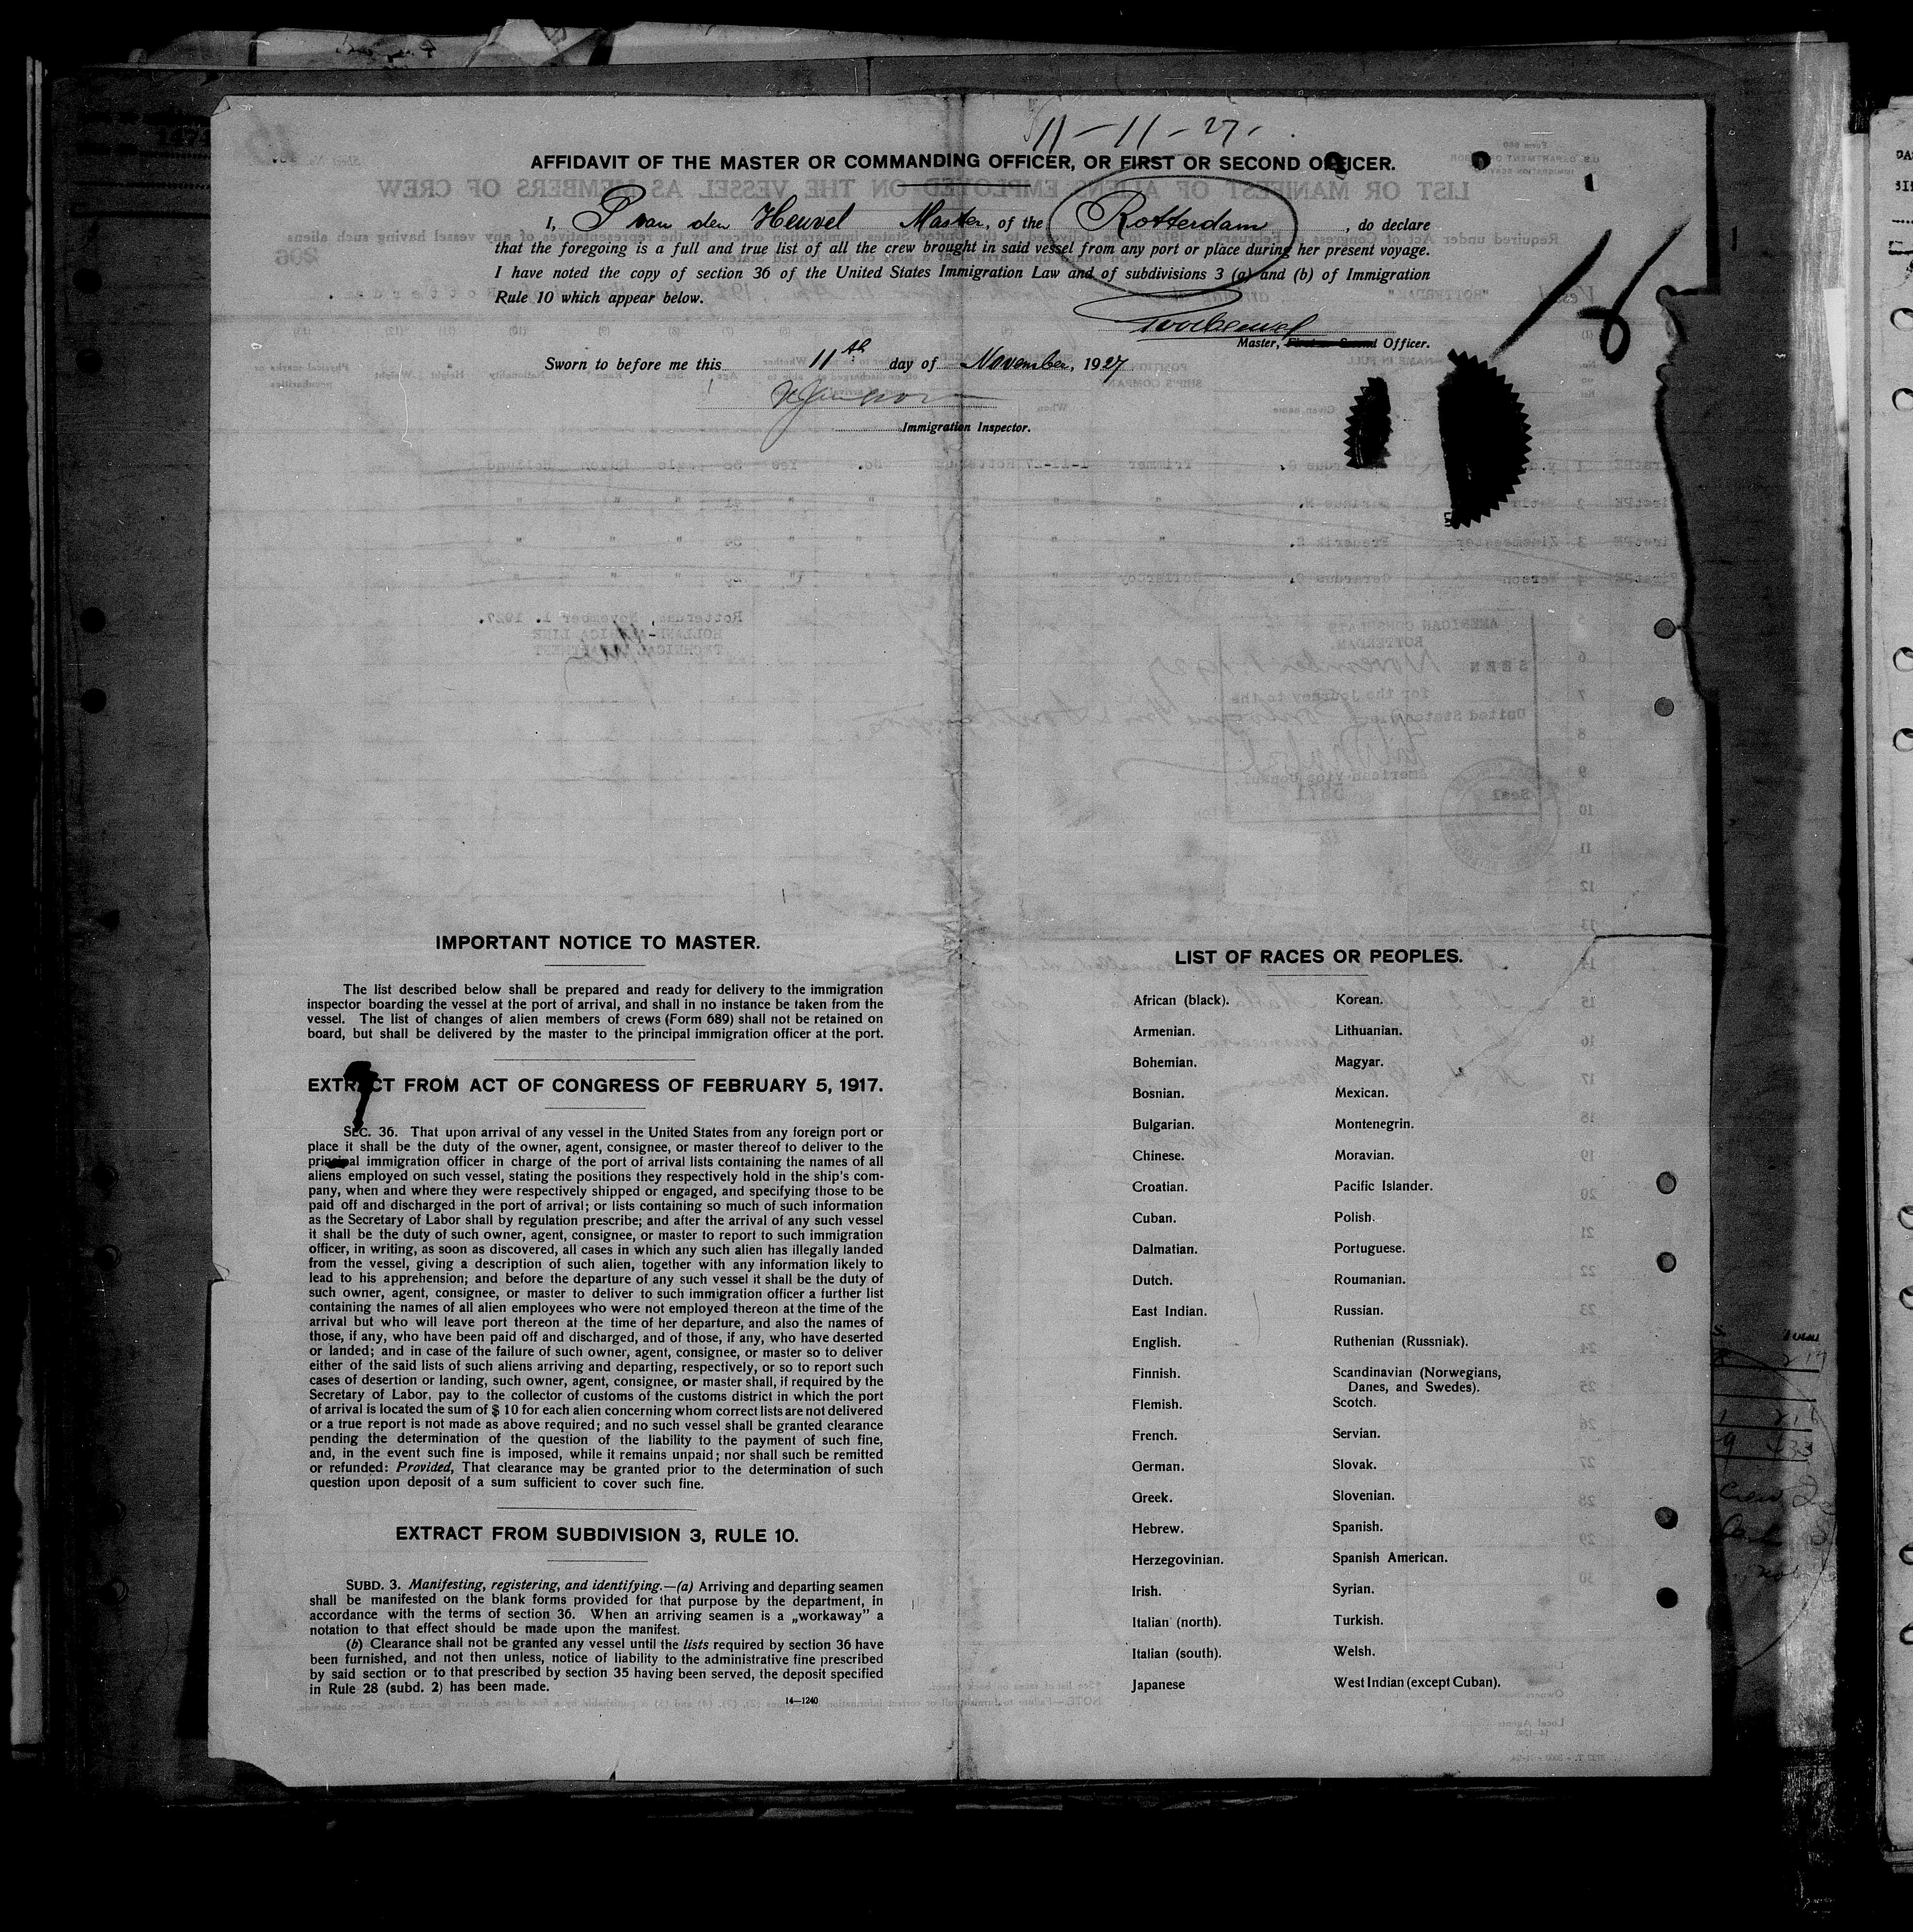 11-11-27.
AFFIDAVIT OF THE MASTER OR COMMANDING OFFICER, OR FIRST OR SECOND OFFICER.
I, P van den Heuvel Master, of the Rotterdam, do declare
that the foregoing is a full and true list of all the crew brought in said vessel from any port or place during her present voyage.
I have noted the copy of section 36 of the United States Immigration Law and of subdivisions 3 (a) and (b) of Immigration
Rule 10 which appear below.
16
Master, First or Second Officer.
Sworn to before me this 11th day of November, 1927
Immigration Inspector.
IMPORTANT NOTICE TO MASTER.
The list described below shall be prepared and ready for delivery to the immigration
inspector boarding the vessel at the port of arrival, and shall in no instance be taken from the
vessel. The list of changes of alien members of crews (Form 689) shall not be retained on
board, but shall be delivered by the master to the principal immigration officer at the port.
EXTRACT FROM ACT OF CONGRESS OF FEBRUARY 5, 1917.
SEC. 36. That upon arrival of any vessel in the United States from any foreign port or
place it shall be the duty of the owner, agent, consignee, or master thereof to deliver to the
principal immigration officer in charge of the port of arrival lists containing the names of all
aliens employed on such vessel, stating the positions they respectively hold in the ship's com-
pany, when and where they were respectively shipped or engaged, and specifying those to be
paid off and discharged in the port of arrival; or lists containing so much of such information
as the Secretary of Labor shall by regulation prescribe; and after the arrival of any such vessel
it shall be the duty of such owner, agent, consignee, or master to report to such immigration
officer, in writing, as soon as discovered, all cases in which any such alien has illegally landed
from the vessel, giving a description of such alien, together with any information likely to
lead to his apprehension; and before the departure of any such vessel it shall be the duty of
such owner, agent, consignee, or master to deliver to such immigration officer a further list
containing the names of all alien employees who were not employed thereon at the time of the
arrival but who will leave port thereon at the time of her departure, and also the names of
those, if any, who have been paid off and discharged, and of those, if any, who have deserted
or landed; and in case of the failure of such owner, agent, consignee, or master so to deliver
either of the said lists of such aliens arriving and departing, respectively, or so to report such
cases of desertion or landing, such owner, agent, consignee, or master shall, if required by the
Secretary of Labor, pay to the collector of customs of the customs district in which the port
of arrival is located the sum of $ 10 for each alien concerning whom correct lists are not delivered
or a true report is not made as above required; and no such vessel shall be granted clearance
pending the determination of the question of the liability to the payment of such fine,
and, in the event such fine is imposed, while it remains unpaid; nor shall such be remitted
or refunded: Provided, That clearance may be granted prior to the determination of such
question upon deposit of a sum sufficient to cover such fine.
EXTRACT FROM SUBDIVISION 3, RULE 10.
SUBD. 3. Manifesting, registering, and identifying.—(a) Arriving and departing seamen
shall be manifested on the blank forms provided for that purpose by the department, in
accordance with the terms of section 36. When an arriving seamen is a „workaway” a
notation to that effect should be made upon the manifest.
(b) Clearance shall not be granted any vessel until the lists required by section 36 have
been furnished, and not then unless, notice of liability to the administrative fine prescribed
by said section or to that prescribed by section 35 having been served, the deposit specified
in Rule 28 (subd. 2) has been made.
14—1240
LIST OF RACES OR PEOPLES.
African (black). Korean.
Armenian. Lithuanian.
Bohemian. Magyar.
Bosnian. Mexican.
Bulgarian. Montenegrin.
Chinese. Moravian.
Croatian. Pacific Islander.
Cuban. Polish.
Dalmatian. Portuguese.
Dutch. Roumanian.
East Indian. Russian.
English. Ruthenian (Russniak).
Finnish. Scandinavian (Norwegians,
Danes, and Swedes).
Flemish. Scotch.
French. Servian.
German. Slovak.
Greek. Slovenian.
Hebrew. Spanish.
Herzegovinian. Spanish American.
Irish. Syrian.
Italian (north). Turkish.
Italian (south). Welsh.
Japanese West Indian (except Cuban).